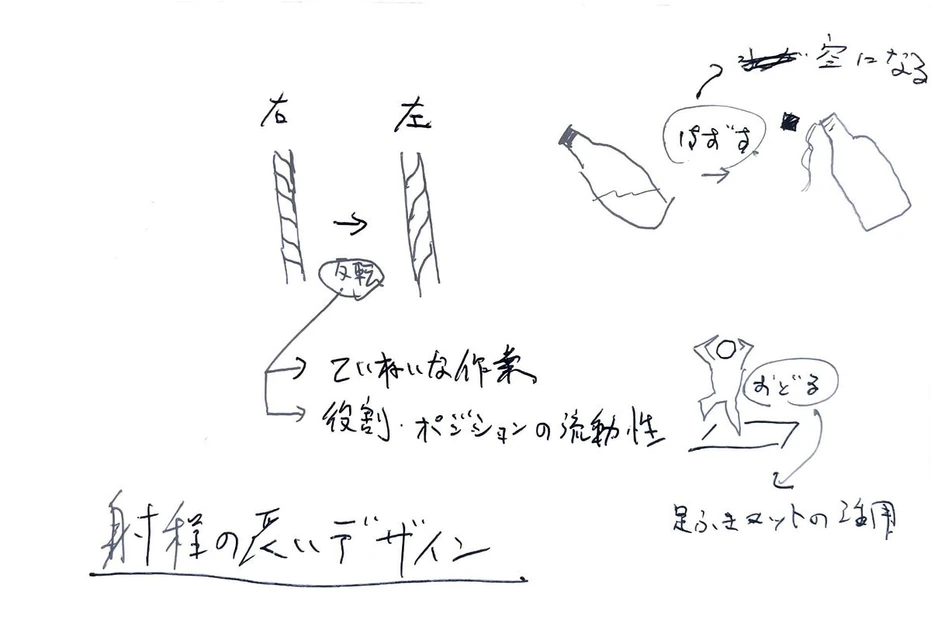 空になる
右
左
はずす
反転
ていねいな作業
役割・ポジションの流動性
おどる
足ふきマットの活用
射程の長いデザイン